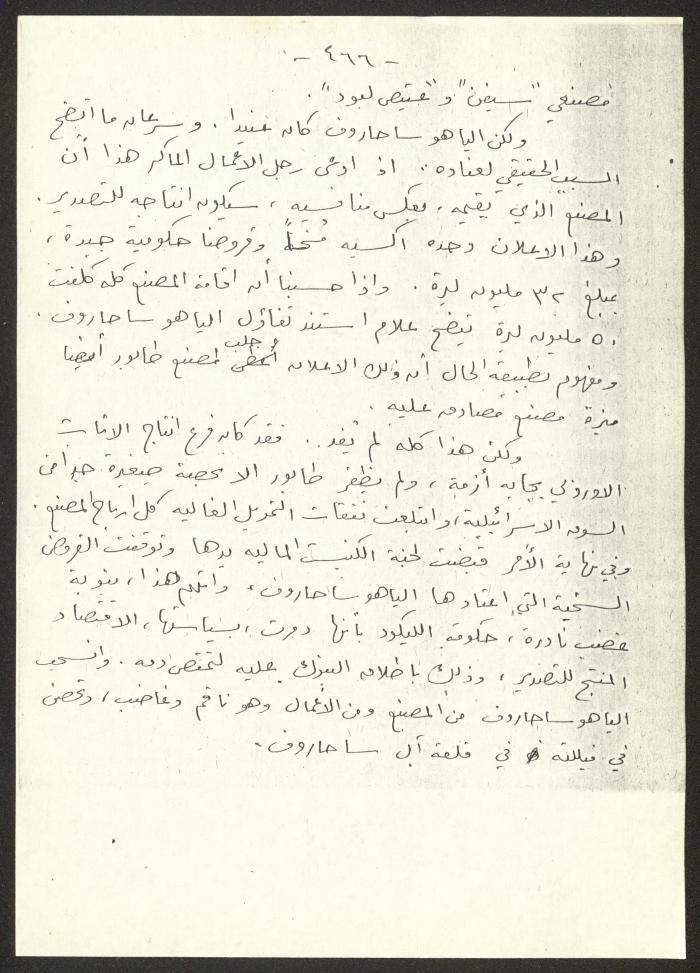 - ٤٦٦ -
مصنعي "سيفن" و"عتيص لبود".
ولكن الياهو ساحاروف كان عنيدا. وسرعان ما اتضح
السبب الحقيقي لعناده. اذ ادعى رجل الاعمال الماكر هذا أن
المصنع الذي يقيمه، بعكس منافسيه، سيكون انتاجه للتصدير.
وهذا الاعلان وحده اكسبه مُنحاً وقروضا حكومية جيدة،
بمبلغ ٣٢ مليون ليرة. واذا حسبنا أن اقامة المصنع كله كلفت
٥٠ مليون ليرة يتضح علام استند تفاؤل الياهو ساحاروف.
ومفهوم بطبيعة الحال أن ذلك الاعلان جلب لمصنع طابور أيضا
ميزة مصنع مصادق عليه.
ولكن هذا كله لم يُفد.. فقد كان فرع انتاج الاثاث
الاوروبي يجابه أزمة، ولم يظفر طابور الا بحصة صغيرة جدا في
السوق الاسرائيلية، وابتلعت نفقات التمويل الغالية كل ارباح المصنع.
وفي نهاية الأمر قبضت لجنة الكنيست المالية يدها وتوقفت القروض
السخية التي اعتادها الياهو ساحاروف، واتهم هذا، بنوبة
غضب نادرة، حكومة الليكود بأنها دمرت، بسياستها، الاقتصاد
المنتج للتصدير، وذلك باطلاق البنوك عليه لتمتص دمه. وانسحب
الياهو ساحاروف من المصنع ومن الأعمال وهو ناقم وغاضب، وتحصن
في فيللته في قلعة آل ساحاروف.